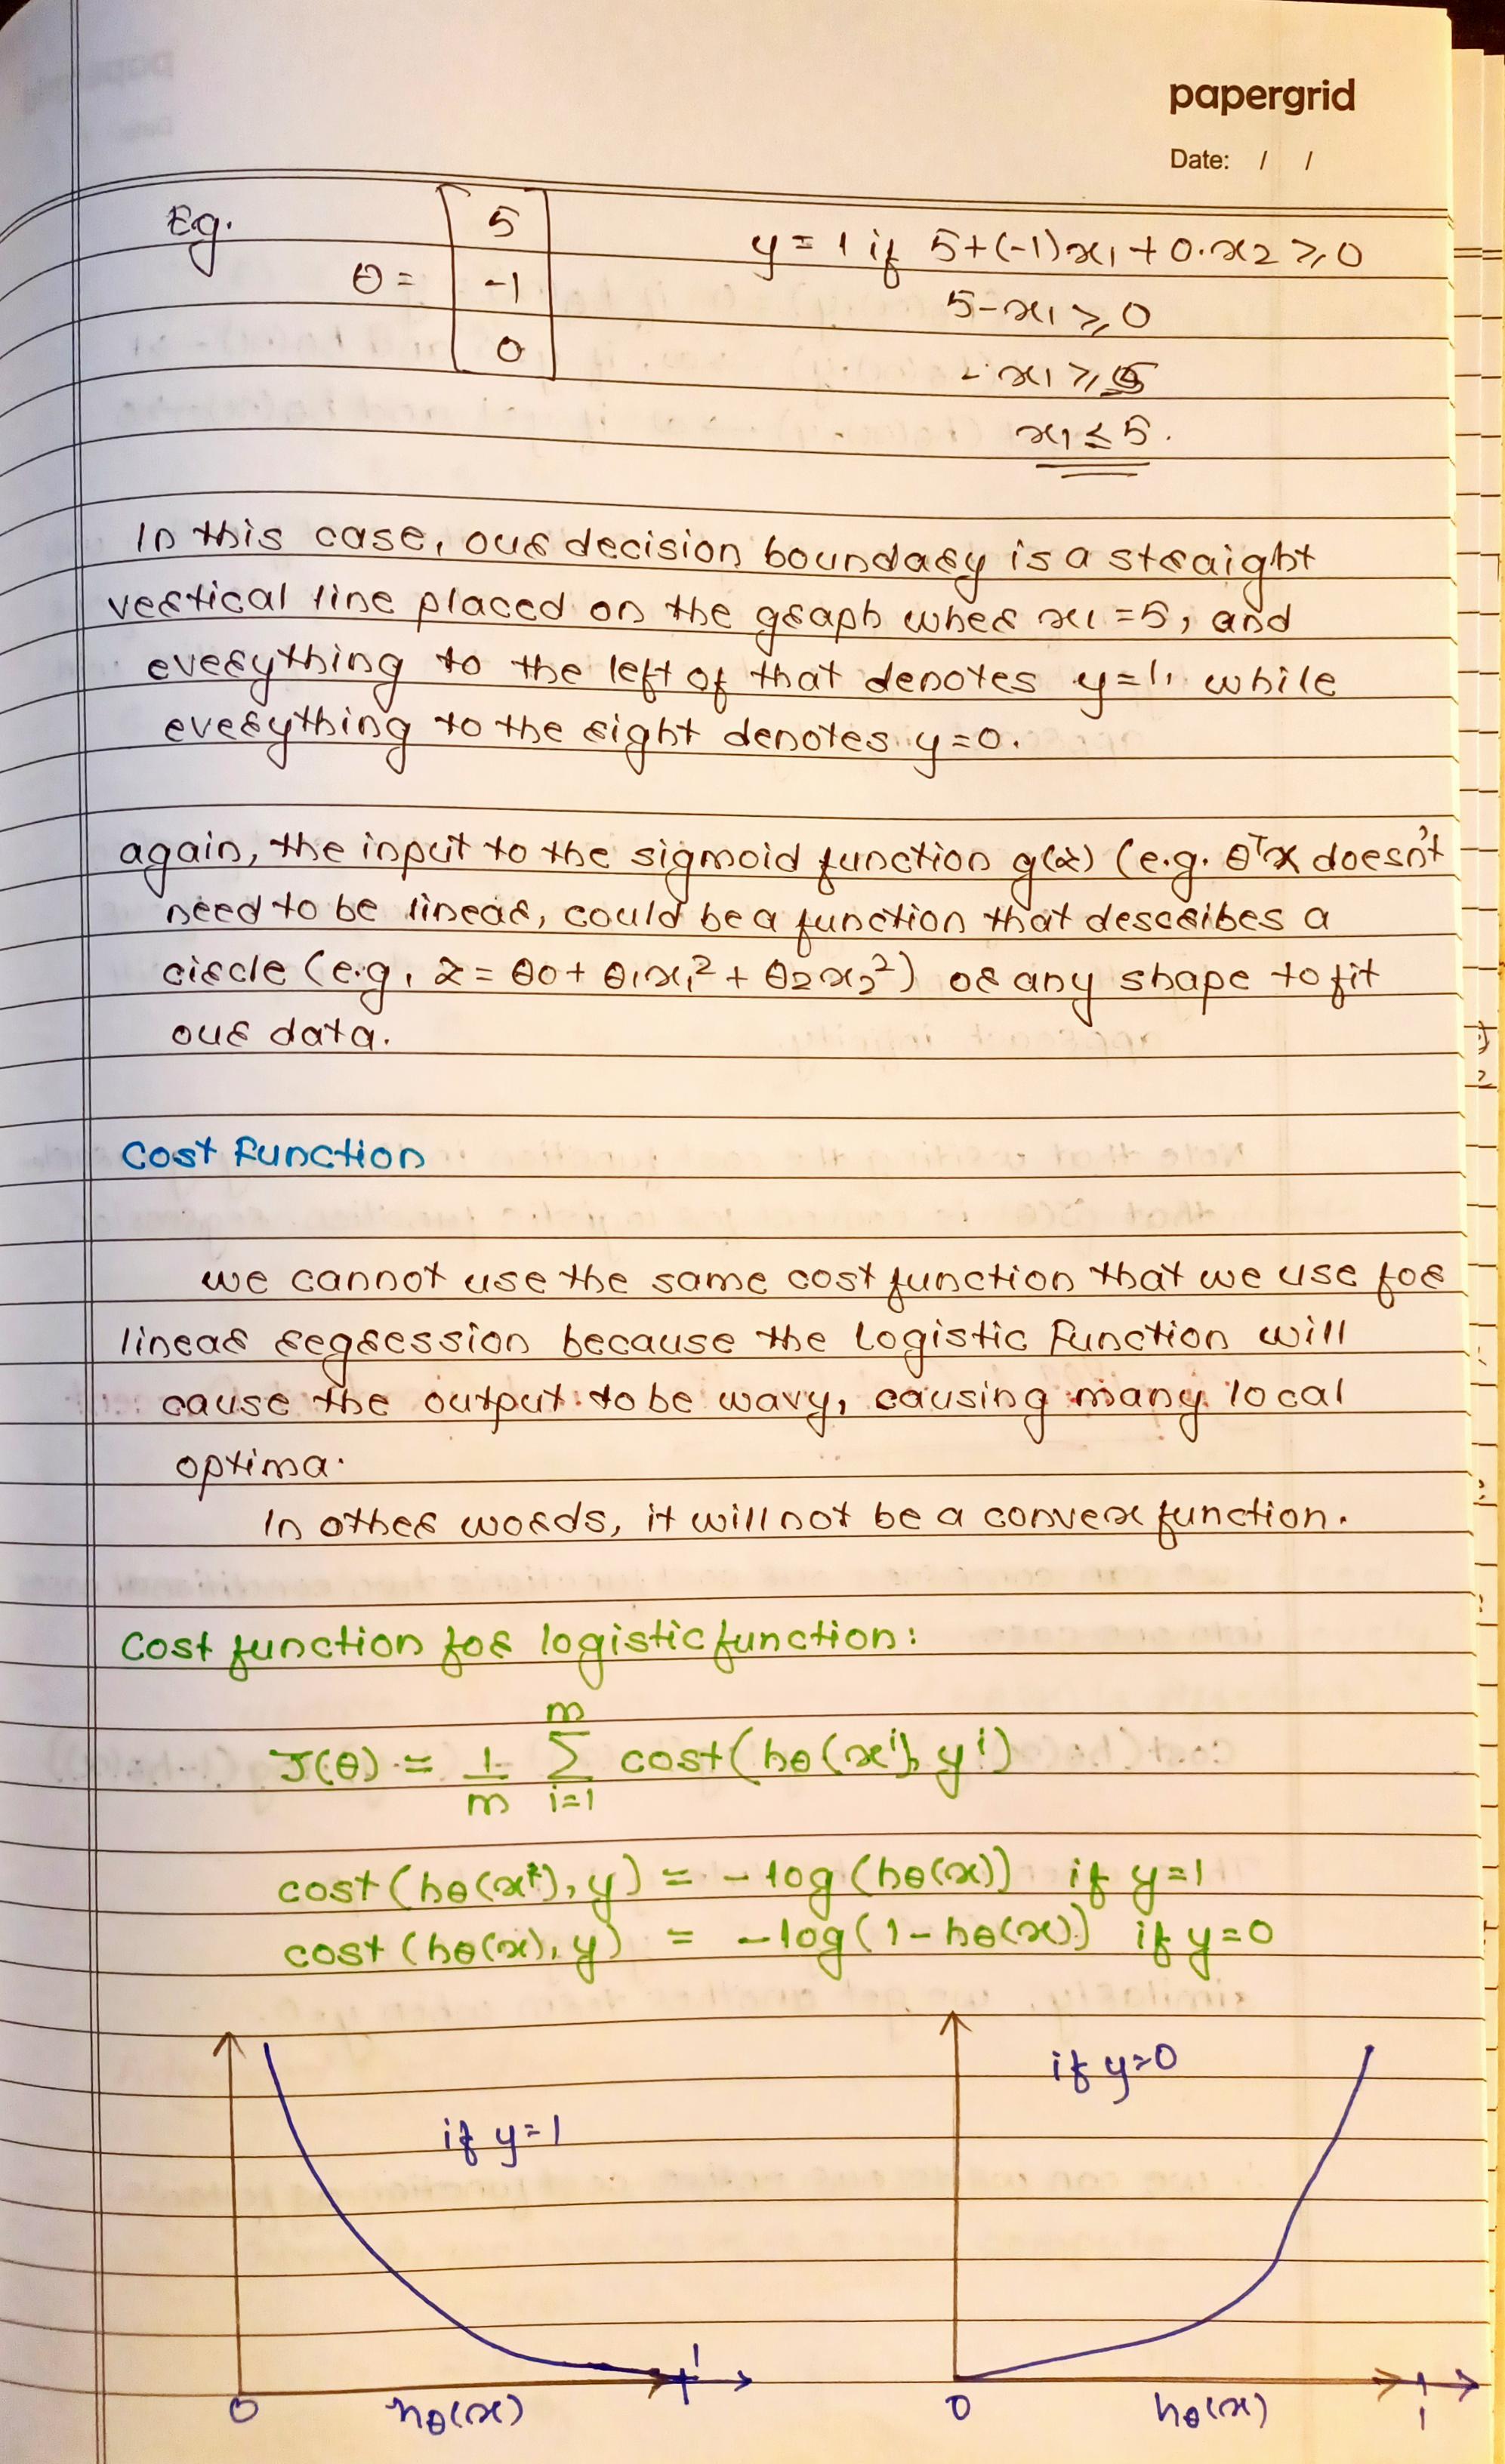 papergrid
Date: / /
Eg.
θ = [5 -1 0]
y = 1 if 5+(-1)x1 + 0.x2 ≥ 0
5-x1 ≥ 0
- x1 ≥
x1 ≤ 5.
In this case, our decision boundary is a straight
vertical line placed on the graph wher x1 = 5, and
everything to the left of that denotes y=1, while
everything to the right denotes y=0.
again, the input to the sigmoid function g(z) (e.g. θᵀx doesn't
need to be linear, could be a function that describes a
circle (e.g, z = θ0 + θ1x1² + θ2x2²) or any shape to fit
our data.
Cost Function
we cannot use the same cost function that we use for
linear regression because the Logistic Function will
cause the output to be wavy, causing many local
optima.
In other words, it will not be a convex function.
Cost function for logistic function:
J(θ) = 1/m Σ_{i=1}^{m} cost(hθ(xⁱ), yⁱ)
cost(hθ(x), y) = -log(hθ(x)) if y=1
cost(hθ(x), y) = -log(1-hθ(x)) if y=0
if y=1
if y=0
1
0 hθ(x)
0 hθ(x) 1